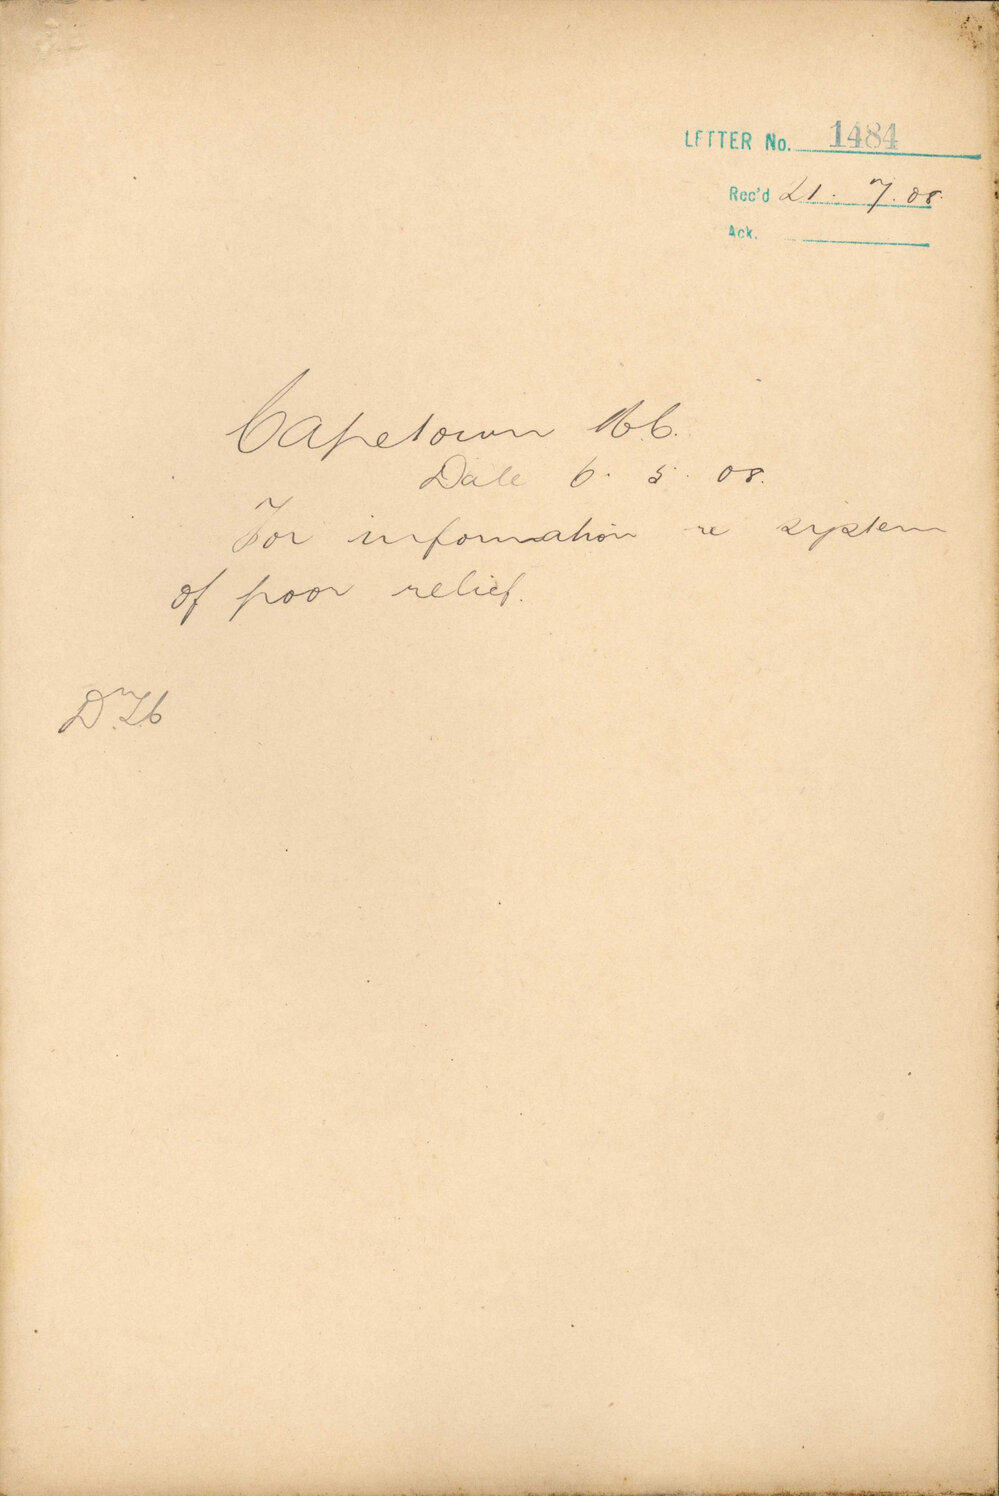 LETTER No. 1484
Rec'd 21. 7. 08.
Ack.
Capetown
Date 6. 5. 08.
For information re system
of poor relief.